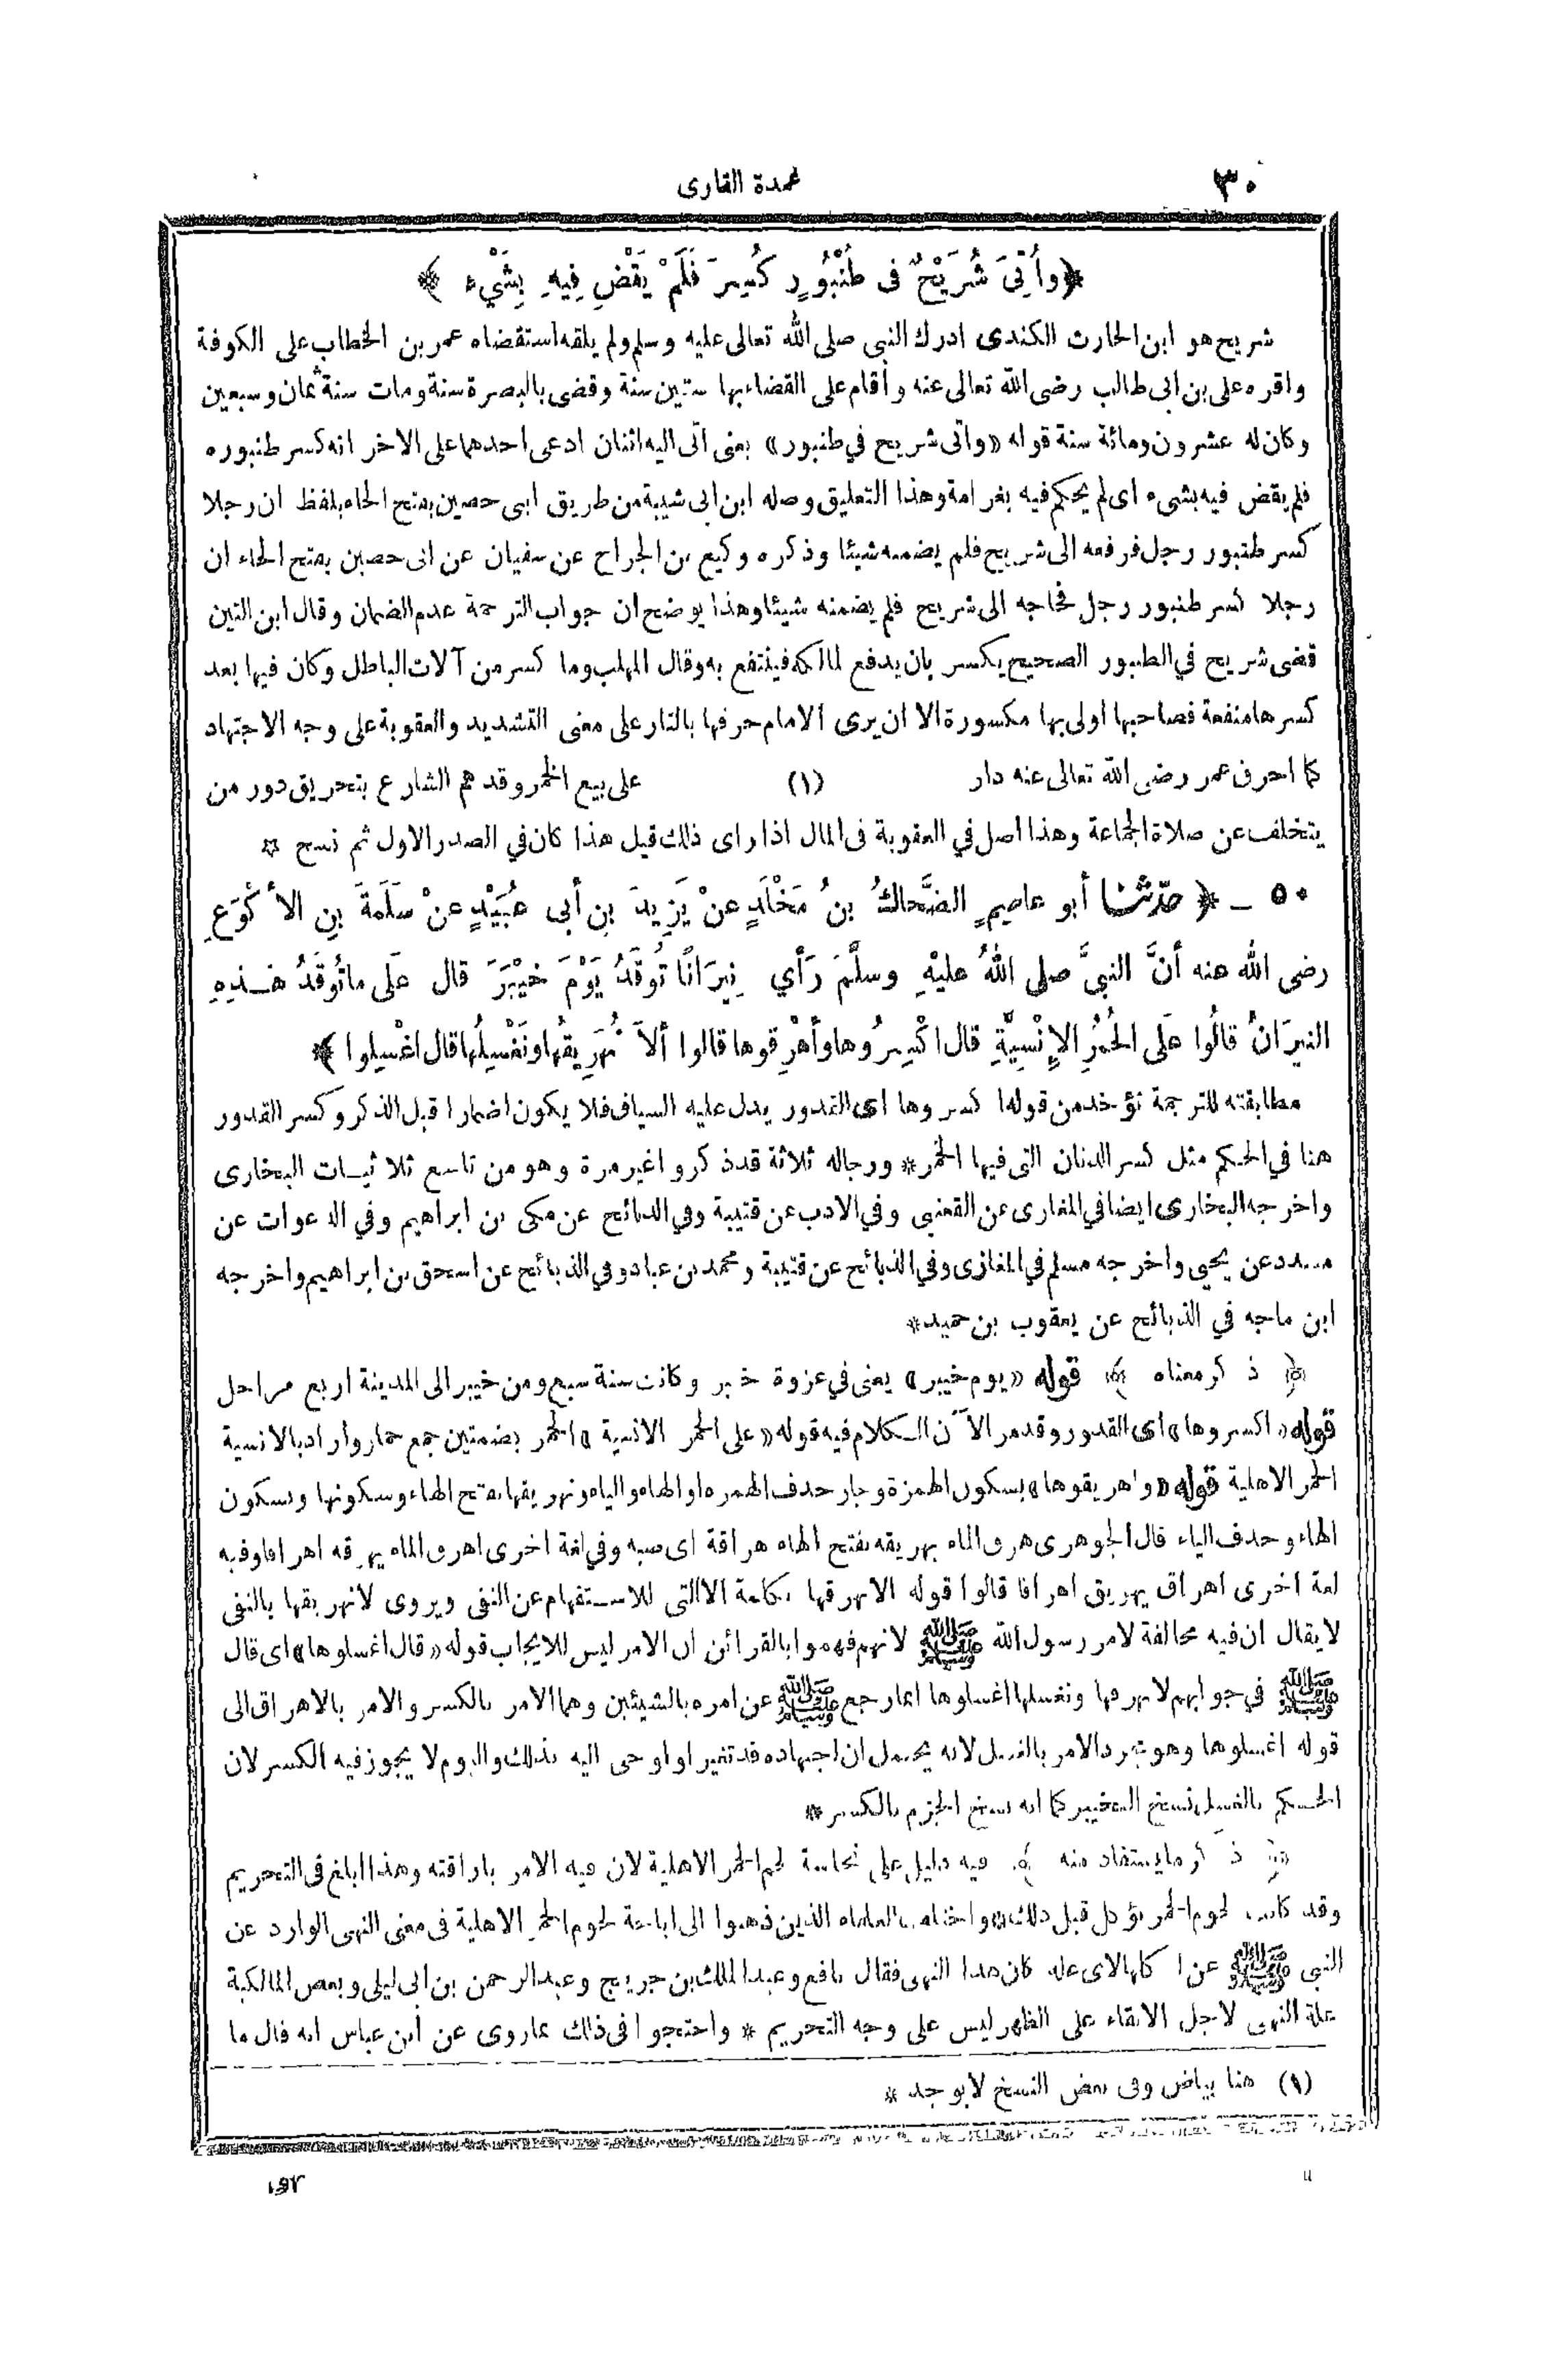 ٣٠
عمدة القارى
﴿وأُتِىَ شُرَيْحٌ فى طُنْبُورٍ كُسِرَ فَلَمْ يَقْضِ فِيهِ بِشَيْءٍ﴾
شريح هو ابن الحارث الكندى ادرك النبى صلى الله تعالى عليه وسلم ولم يلقه استقضاه عمر بن الخطاب على الكوفة
واقره على بن ابى طالب رضى الله تعالى عنه وأقام على القضاء بها ستين سنة وقضى بالبصرة سنة ومات سنة ثمان وسبعين
وكان له عشرون ومائة سنة قوله «واتى شريح في طنبور» بمعنى اتى اليه اثنان ادعى احدهما على الاخر انه كسر طنبوره
فلم يقض فيه بشىء اى لم يحكم فيه بغرامة وهذا التعليق وصله ابن ابى شيبة من طريق ابى حصين بفتح الحاء بلفظ ان رجلا
كسر طنبور رجل فرفعه الى شريح فلم يضمنه شيئا وذكره وكيع بن الجراح عن سفيان عن ابى حصين بفتح الحاء ان
رجلا كسر طنبور رجل فحاجه الى شريح فلم يضمنه شيئا وهذا يوضح ان جواب الترجمة عدم الضمان وقال ابن التين
قضى شريح في الطنبور الصحيح يكسر بان يدفع لمالكه فينتفع به وقال المهلب وما كسر من آلات الباطل وكان فيها بعد
كسرها منفعة فصاحبها اولى بها مكسورة الا ان يرى الامام حرقها بالنار على معنى التشديد والعقوبة على وجه الاجتهاد
كما احرق عمر رضى الله تعالى عنه دار (١) على بيع الخمر وقد هم الشارع بتحريق دور من
يتخلف عن صلاة الجماعة وهذا اصل في العقوبة فى المال اذا راى ذلك قيل هذا كان في الصدر الاول ثم نسخ *
٥٠ - ﴿حدّثنا أبو عاصِمٍ الضَّحاكُ بنُ مَخْلَدٍ عنْ يَزِيدَ بنِ أبى عُبَيْدٍ عنْ سَلَمَةَ بنِ الأكْوَعِ
رضى الله عنه أنَّ النبىَّ صلى اللهُ عليْهِ وسلَّمَ رَأي نِيرَانًا تُوقَدُ يَوْمَ خيْبَرَ قال عَلَى ما تُوقَدُ هـذِهِ
النيرَانُ قالُوا عَلَى الحُمُرِ الإِنْسِيَّةِ قال اكْسِرُوها وأهْرِقوها قالوا ألاَ نُهَرِيقُها ونَغْسِلُها قال اغْسِلوا﴾
مطابقته للترجمة تؤخذ من قوله اكسروها اى القدور يدل عليه السياق فلا يكون اضمارا قبل الذكر وكسر القدور
هنا في الحكم مثل كسر الدنان التى فيها الخمر * ورجاله ثلاثة قد ذكروا غير مرة وهو من تاسع ثلاثيـات البخارى
واخرجه البخارى ايضا في المغازى عن القعنبى وفي الادب عن قتيبة وفي الذبائح عن مكى بن ابراهيم وفي الدعوات عن
مسدد عن يحيى واخرجه مسلم في المغازى وفي الذبائح عن قتيبة ومحمد بن عباد وفي الذبائح عن اسحق بن ابراهيم واخرجه
ابن ماجه في الذبائح عن يعقوب بن حميد *
﴿ذكر معناه﴾ قوله «يوم خيبر» يعنى في غزوة خيبر وكانت سنة سبع ومن خيبر الى المدينة اربع مراحل
قوله «اكسروها» اى القدور وقد مر الآن الـكلام فيه قوله «على الحمر الانسية» الحمر بضمتين جمع حمار واراد بالانسية
الحمر الاهلية قوله «واهريقوها» بسكون الهمزة وجاز حذف الهمزة او الهاء والياء ونهريقها بفتح الهاء وسكونها وبسكون
الهاء وحذف الياء قال الجوهرى هرق الماء يهريقه بفتح الهاء هراقة اى صبه وفي لغة اخرى اهرق الماء يهرقه اهراقا وفيه
لغة اخرى اهراق يهريق اهراقا قالوا قوله الا نهرقها بكلمة الا التى للاسـتفهام عن النفى ويروى لا نهريقها بالنفى
لا يقال ان فيه مخالفة لامر رسول الله ﷺ لانهم فهموا بالقرائن ان الامر ليس للايجاب قوله «قال اغسلوها» اى قال
ﷺ في جوابهم لانهرقها ونغسلها اغسلوها انما رجع ﷺ عن امره بالشيئين وهما الامر بالكسر والامر بالاهراق الى
قوله اغسلوها وهو مجرد الامر بالغسل لانه يحتمل ان اجتهاده قد تغير او اوحى اليه بذلك واليوم لا يجوز فيه الكسر لان
الحـكم بالغسل نسخ التخيير كما انه نسخ الجزم بالكسر *
﴿ذكر ما يستفاد منه﴾ فيه دليل على نجاسة لحم الحمر الاهلية لان فيه الامر باراقته وهذا ابلغ فى التحريم
وقد كانت لحوم الحمر تؤكل قبل ذلك * واختلف العلماء الذين ذهبوا الى اباحة لحوم الحمر الاهلية فى معنى النهى الوارد عن
النبى ﷺ عن اكلها لاى علة كان هذا النهى فقال نافع وعبد الملك بن جريج وعبد الرحمن بن ابى ليلى وبعض المالكية
علة النهى لاجل الابقاء على الظهر ليس على وجه التحريم * واحتجوا فى ذلك بما روى عن ابن عباس انه قال ما
(١) هنا بياض وفى بعض النسخ لا يوجد *